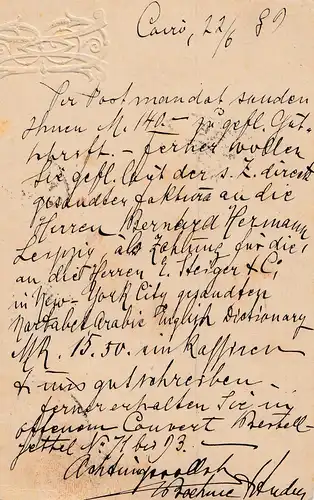 Cairo, 22/6 89
Per Postmandat senden
Ihnen M. 140.- zu gefl. Gut-
schrift. - ferner wollen
Sie gefl. laut der s. Z. direkt
gesandten faktura an die
Herren Bernard Hermann
Leipzig als Zahlung für die
an die Herren E. Steiger & Co,
in New-York City gesandten
Kartabet Arabic English Dictionary
MK. 15.50. einkassiren
& uns gutschreiben -
ferner erhalten Sie in
offenem Couvert Bestell-
zettel No 71 bis 93. -
Achtungsvollst
Boehme &